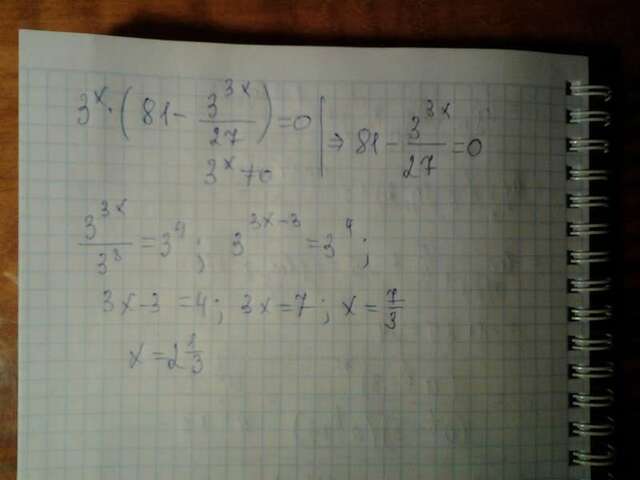 3^x · (81 - 3^{3x}/27) = 0 | ⇒ 81 - 3^{3x}/27 = 0
3^x ≠ 0
3^{3x}/3^3 = 3^4; 3^{3x-3} = 3^4;
3x-3 = 4; 3x = 7; x = 7/3
x = 2 1/3